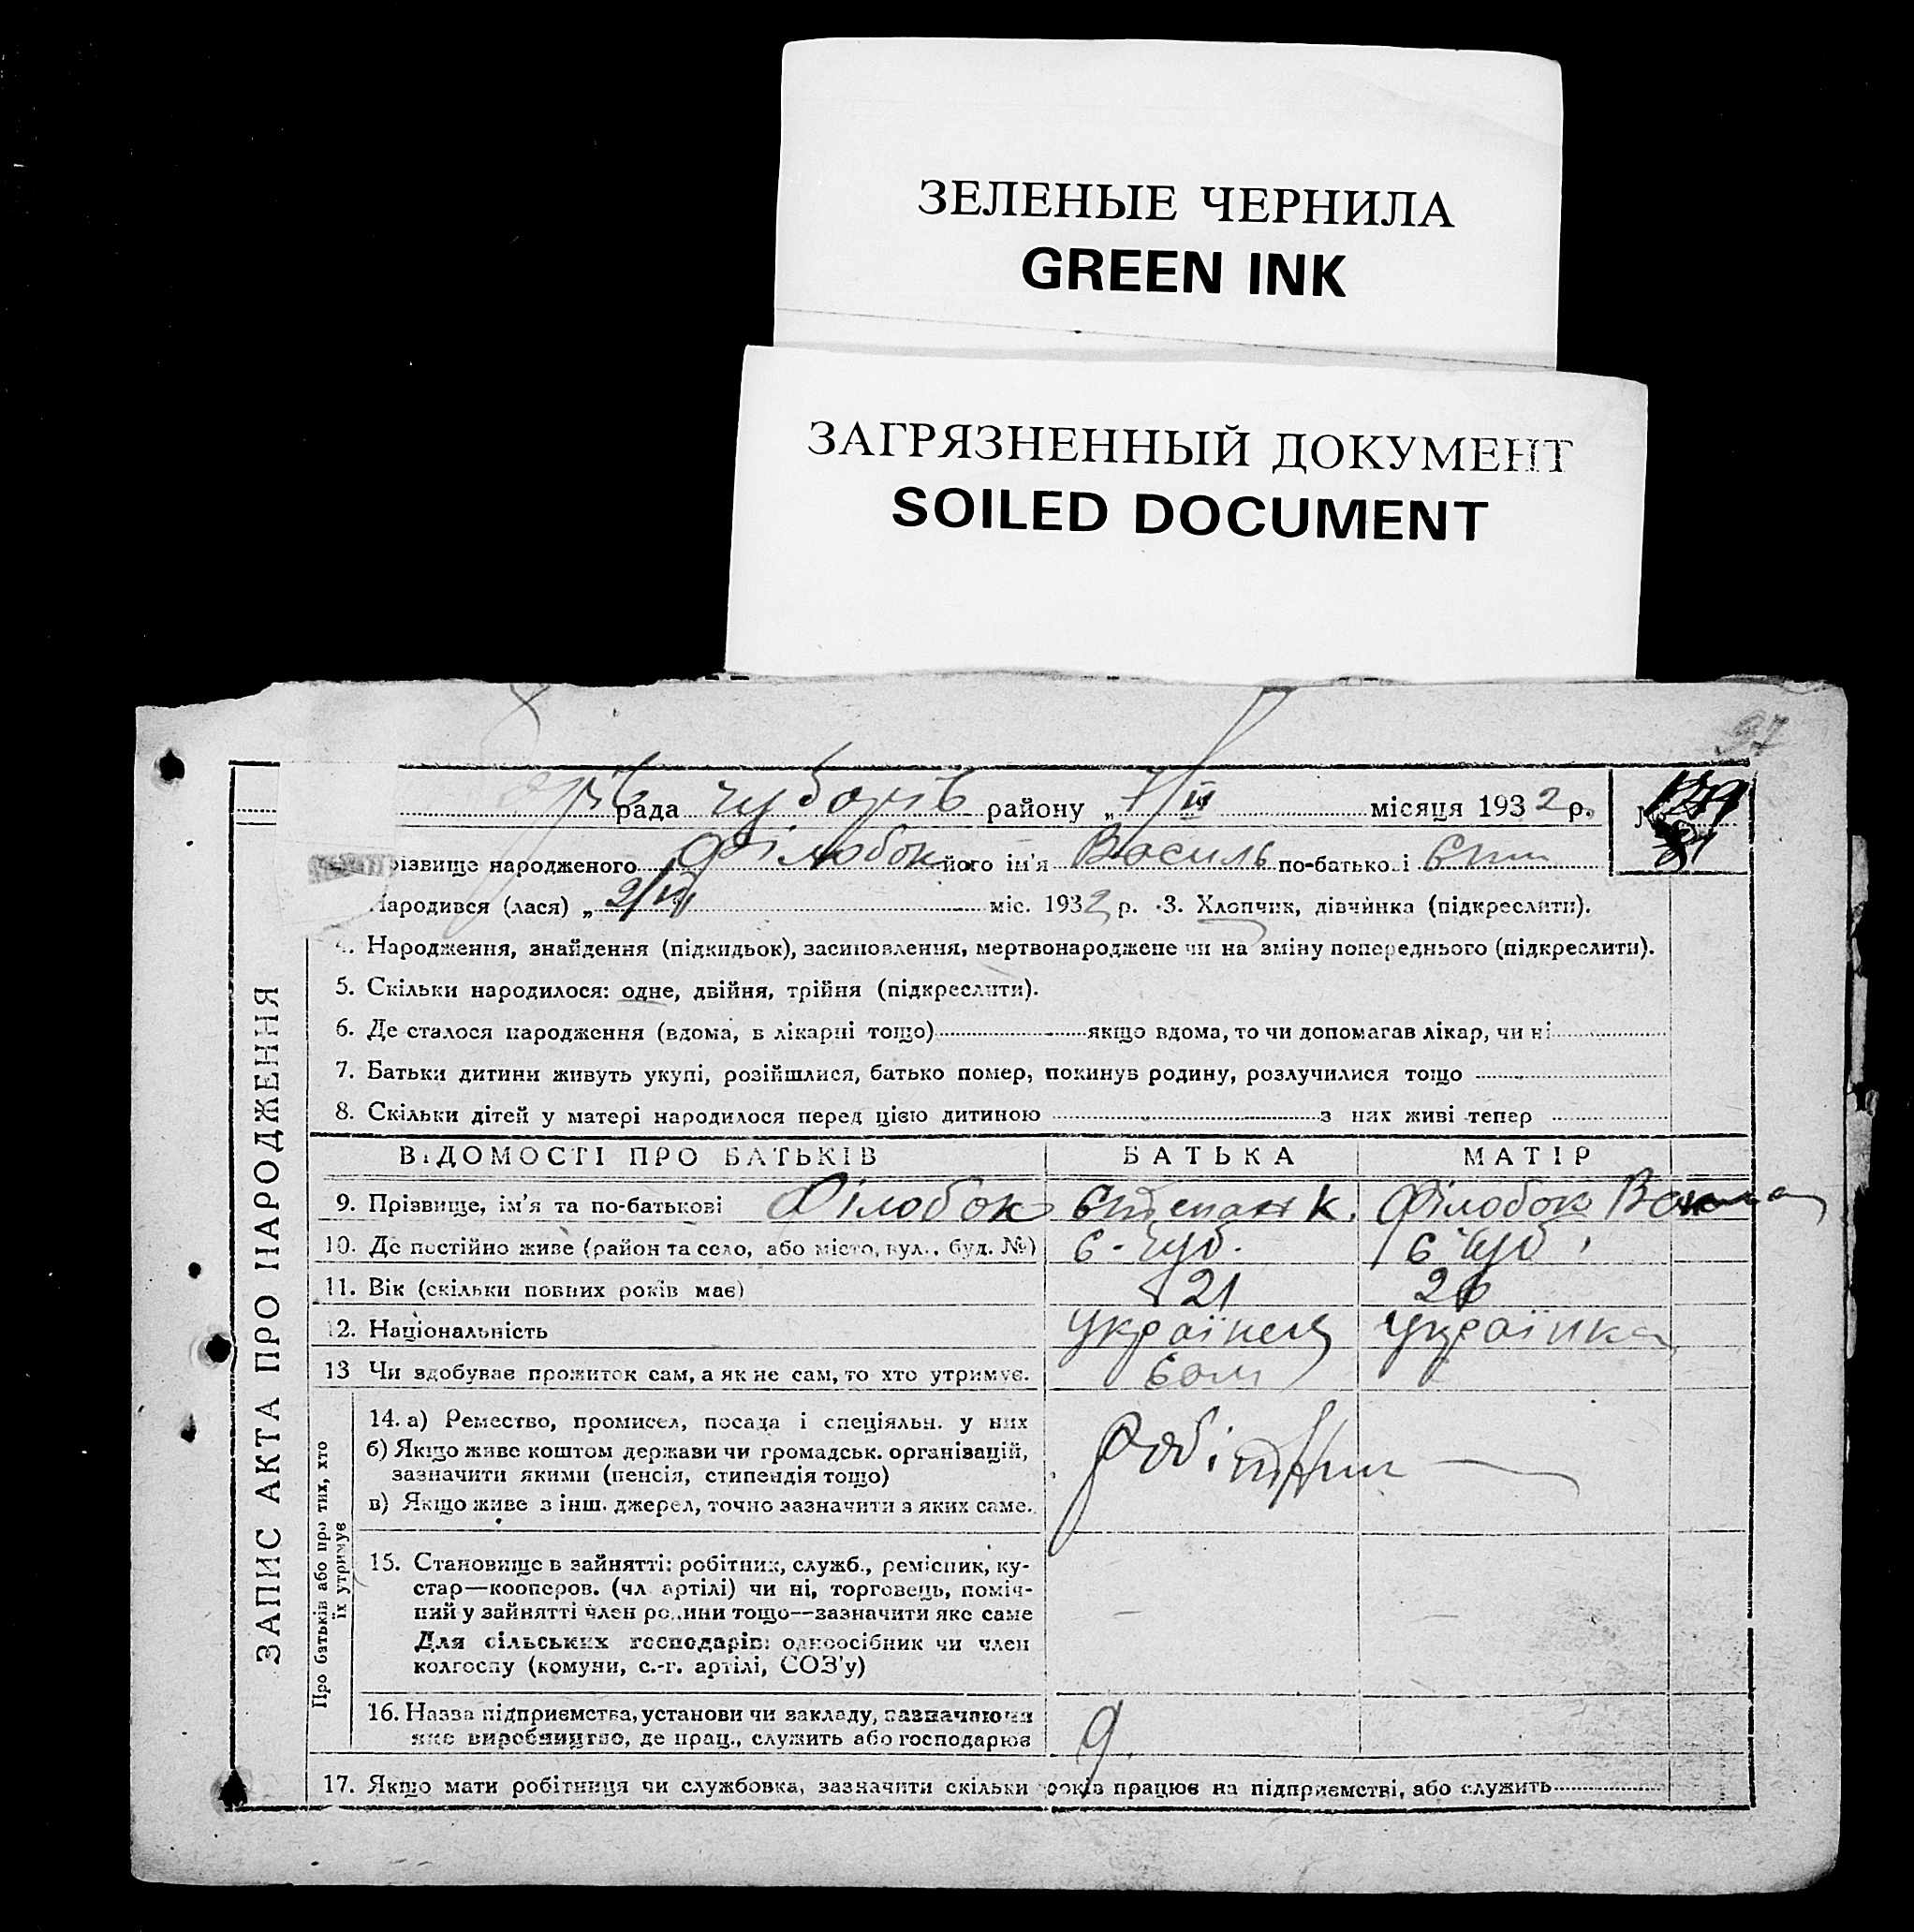 ЗЕЛЕНЫЕ ЧЕРНИЛА
GREEN INK
ЗАГРЯЗНЕННЫЙ ДОКУМЕНТ
SOILED DOCUMENT
97
рада Чубарів району „ 7/III місяця 1932 р.
різвище народженого Філобок його ім'я Василь по-батькові Степ
Народився (лася) „ 2/III міс. 1932 р. 3. Хлопчик, дівчинка (підкреслити).
4. Народження, знайдення (підкидьок), засиновлення, мертвонароджене чи на зміну попереднього (підкреслити).
5. Скільки народилося: одне, двійня, трійня (підкреслити).
6. Де сталося народження (вдома, в лікарні тощо) якщо вдома, то чи допомагав лікар, чи ні
7. Батьки дитини живуть укупі, розійшлися, батько помер, покинув родину, розлучилися тощо
8. Скільки дітей у матері народилося перед цією дитиною з них живі тепер
ЗАПИС АКТА ПРО НАРОДЖЕННЯ
ВІДОМОСТІ ПРО БАТЬКІВ БАТЬКА МАТІР
9. Прізвище, ім'я та по-батькові Філобок Степан К. Філобок
10. Де постійно живе (район та село, або місто, вул., буд. №) с. Чуб. с. Чуб.
11. Вік (скільки повних років має) 21 26
12. Національність Українець Українка
13 Чи здобуває прожиток сам, а як не сам, то хто утримує. сам
Про батьків або про тих, хто
їх утримує
14. а) Ремество, промисел, посада і спеціяльн. у них
б) Якщо живе коштом держави чи громадськ. організацій,
зазначити якими (пенсія, стипендія тощо)
в) Якщо живе з інш. джерел, точно зазначити з яких саме.
15. Становище в зайнятті: робітник, служб., ремісник, ку-
стар—кооперов. (чл. артілі) чи ні, торговець, поміч-
ний у зайнятті член родини тощо—зазначити яке саме
Для сільських господарів: одноосібник чи член
колгоспу (комуни, с.-г. артілі, СОЗ'у)
16. Назва підприємства, установи чи закладу, зазначаючи
яке виробництво, де прац., служить або господарює
17. Якщо мати робітниця чи службовка, зазначити скільки років працює на підприємстві, або служить